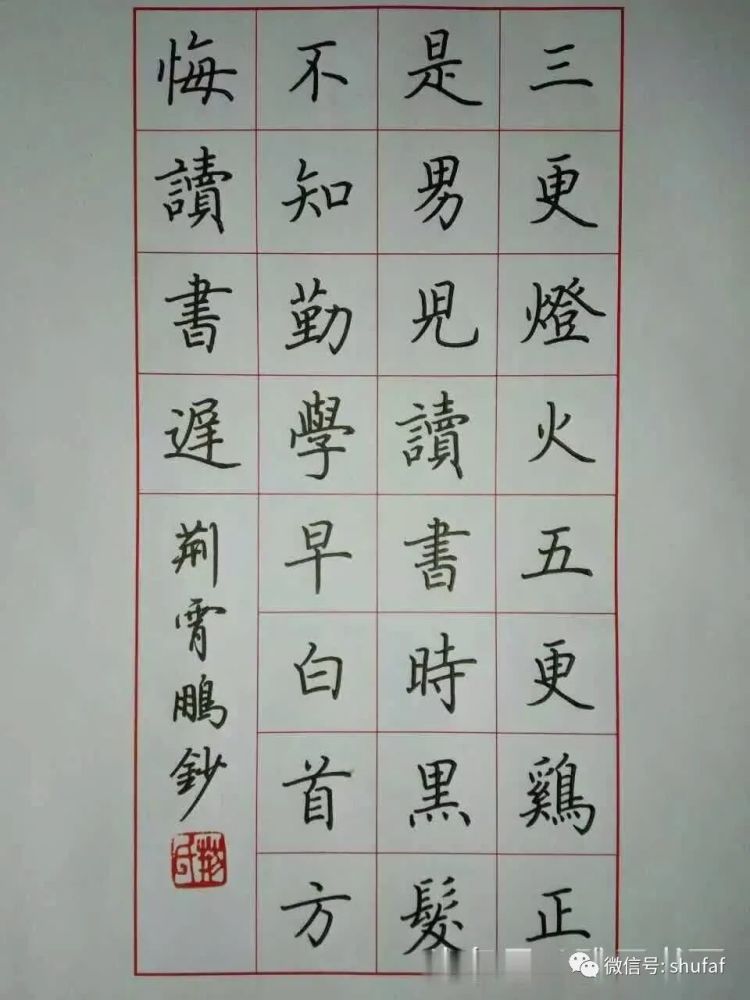 三更燈火五更鷄正
是男児讀書時黒髮
不知勤學早白首方
悔讀書遲
荊霄鵬鈔
微信号: shufaf